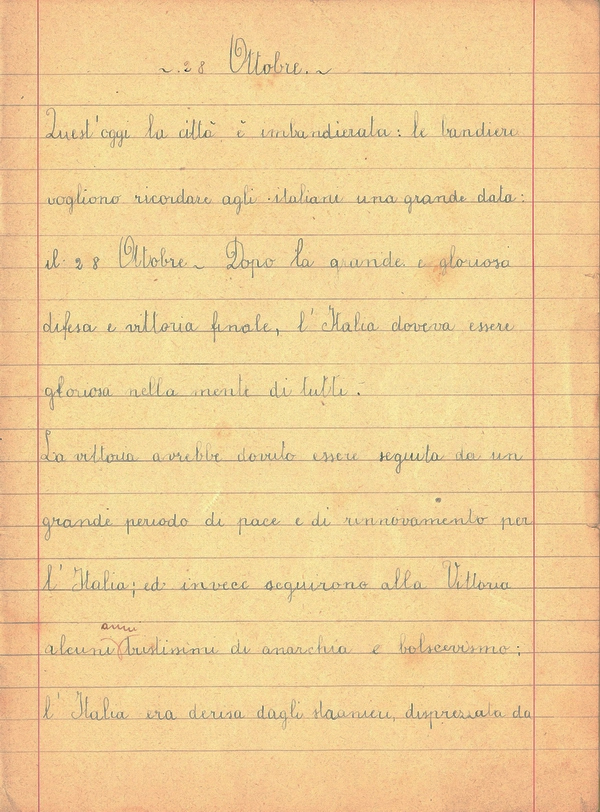 ~. 28 Ottobre. ~
Quest'oggi la città è imbandierata: le bandiere
vogliono ricordare agli italiani una grande data:
il 28 Ottobre ~ Dopo la grande e gloriosa
difesa e vittoria finale, l'Italia doveva essere
gloriosa nella mente di tutti.
La vittoria avrebbe dovuto essere seguita da un
grande periodo di pace e di rinnovamento per
l'Italia; ed invece seguirono alla Vittoria
anni
alcuni tristissimi di anarchia e bolscevismo;
l'Italia era derisa dagli staanieri, disprezzata da